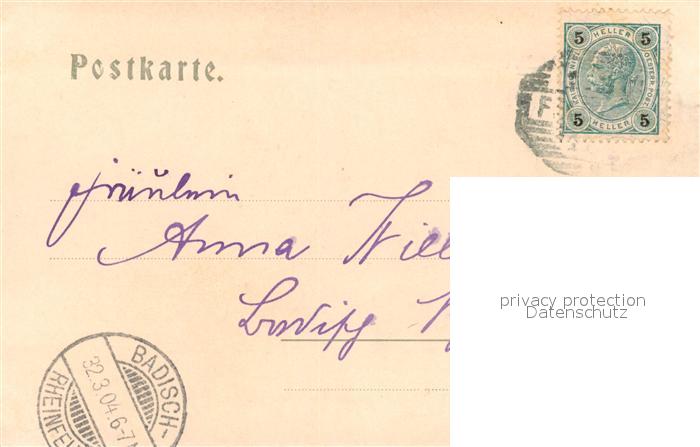 Postkarte.
5 HELLER 5
KAIS. KÖNIGL. OESTERR. POST.
5 HELLER 5
F
Fräulein
Anna Will
privacy protection
Datenschutz
BADISCH-
32.3.04.6-7
RHEINFEL